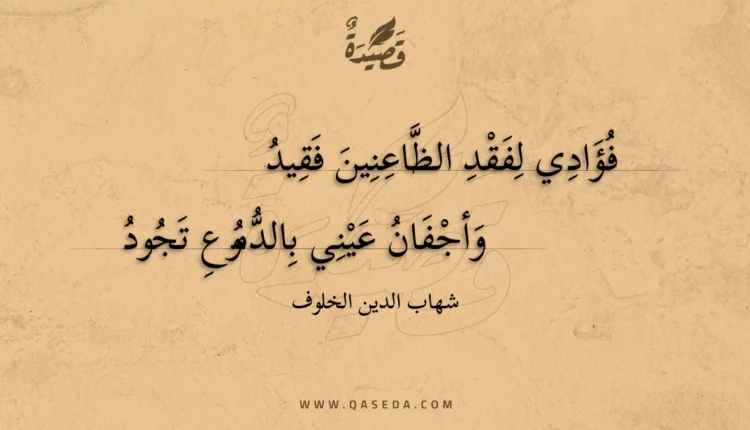 قَصِيْدَةٌ
فُؤَادِي لِفَقْدِ الظَّاعِنِينَ فَقِيدُ
وَأجْفَانُ عَيْنِي بِالدُّمُوُعِ تَجُودُ
شهاب الدين الخلوف
WWW.QASEDA.COM